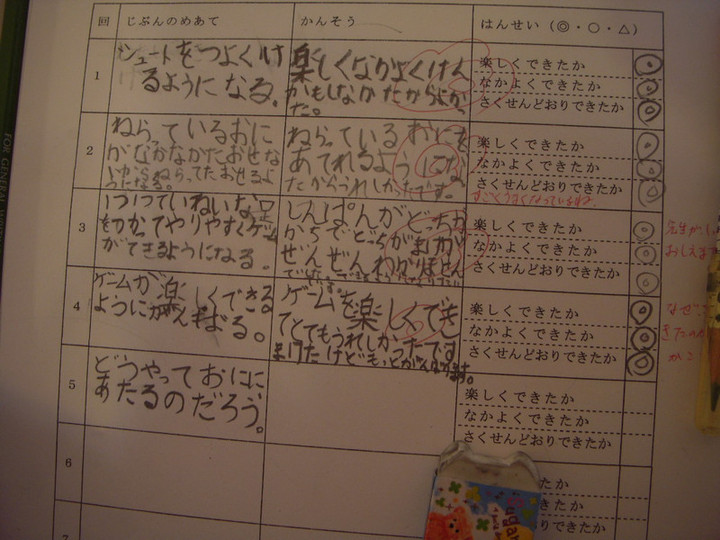 回 じぶんのめあて かんそう はんせい（◎・○・△）
1
シュートをつよくけ
るようになる。
楽しくなかよくけん
かもしなかたからよか
た。
楽しくできたか ◎
なかよくできたか ◎
さくせんどおりできたか ◎
2
ねらっているおに
がなかなか
ねらってたおせるよ
うになる。
ねらっているおにを
あてれるようにな
たからうれしかたです。
楽しくできたか
なかよくできたか
さくせんどおりできたか
3
ていねいな
をつかてやりやすくゲーム
ができるようになる。
しんぱんがどっちか
からでどっちがまけか
ぜんぜんわかりません
楽しくできたか
なかよくできたか
さくせんどおりできたか
先生が
おしえます
4
ゲームが楽しくできる
ようにがんばる。
ゲームを楽しくでき
てとてもうれしかったです
まけたけどもっとがんばります。
楽しくできたか
なかよくできたか
さくせんどおりできたか
なぜ
きたのか
5
どうやっておにに
あたるのだろう。
楽しくできたか
なかよくできたか
さくせんどおりできたか
6
たか
きたか
りできたか
7
FOR GENERAL